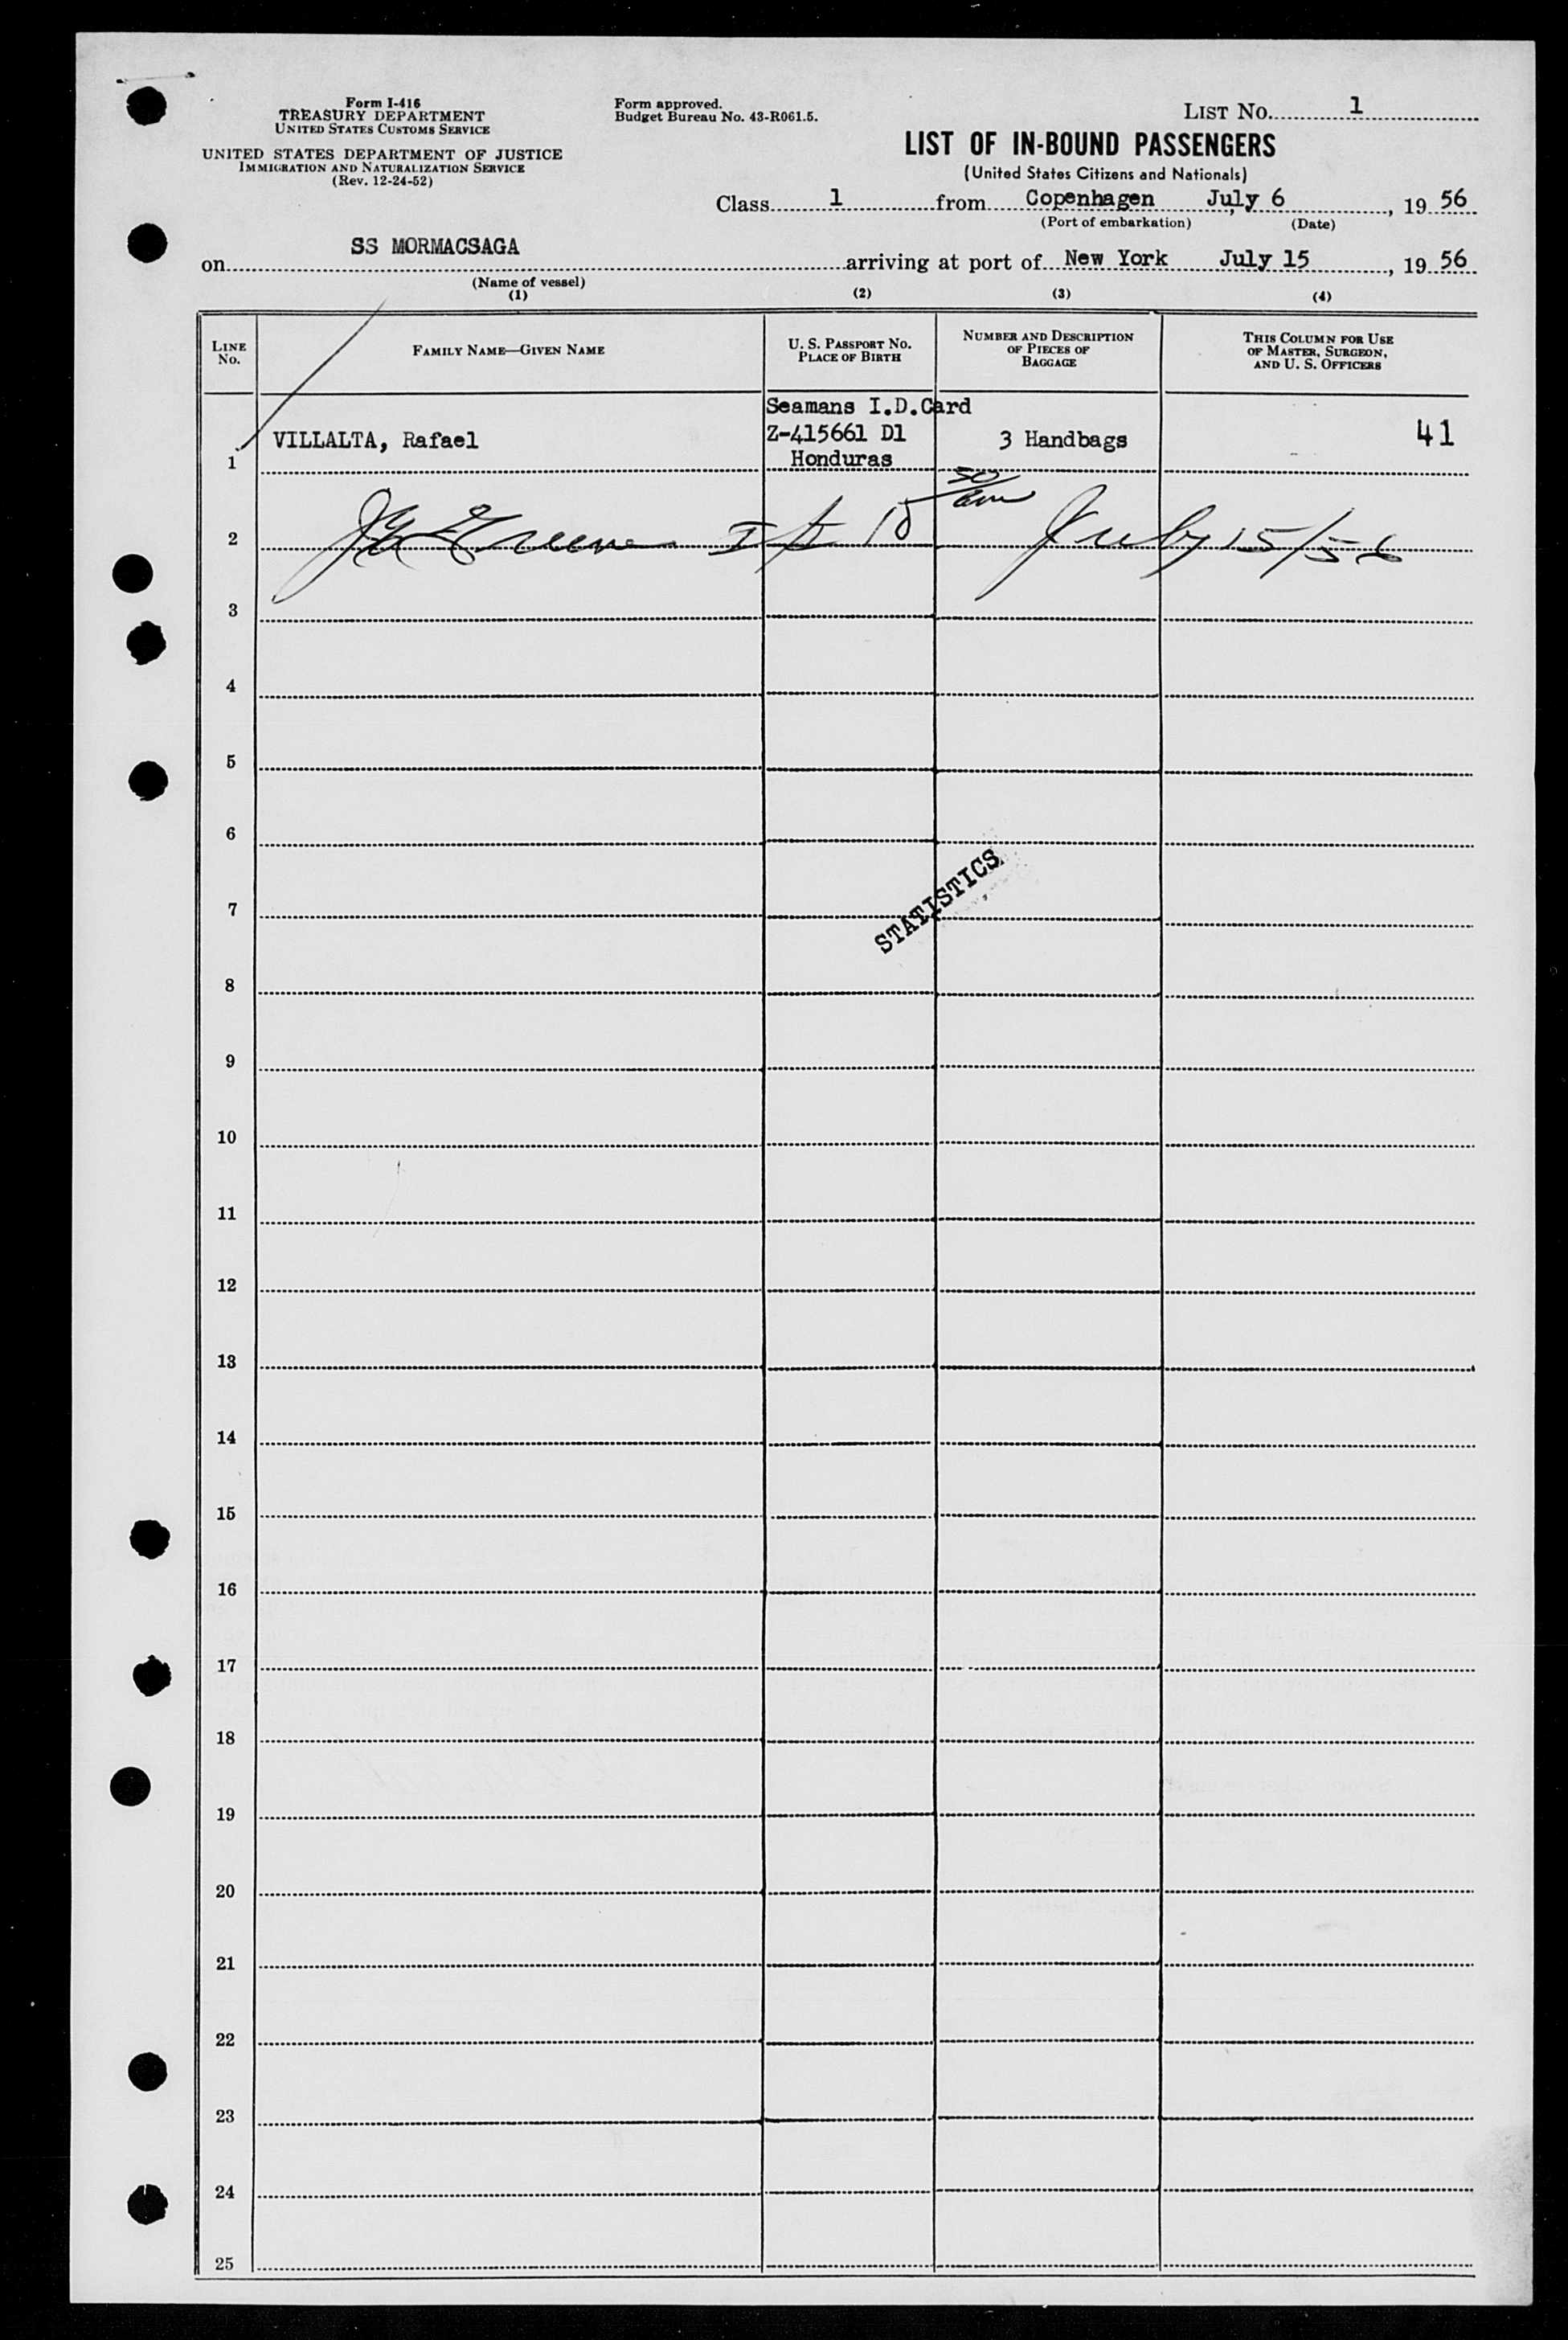 Form I-416
TREASURY DEPARTMENT
UNITED STATES CUSTOMS SERVICE
UNITED STATES DEPARTMENT OF JUSTICE
IMMIGRATION AND NATURALIZATION SERVICE
(Rev. 12-24-52)
Form approved.
Budget Bureau No. 43-R061.5.
LIST NO. 1
LIST OF IN-BOUND PASSENGERS
(United States Citizens and Nationals)
Class 1 from Copenhagen July 6, 19 56
(Port of embarkation) (Date)
on SS MORMACSAGA arriving at port of New York July 15, 19 56
(Name of vessel)
(1) (2) (3) (4)
LINE NO.
FAMILY NAME—GIVEN NAME
U. S. PASSPORT NO.
PLACE OF BIRTH
NUMBER AND DESCRIPTION
OF PIECES OF
BAGGAGE
THIS COLUMN FOR USE
OF MASTER, SURGEON,
AND U. S. OFFICERS
Seamans I.D.Card
1 VILLALTA, Rafael Z-415661 D1 3 Handbags 41
Honduras
2 Greene 10 30/am July 15/56
3
4
5
6
7
STATISTICS
8
9
10
11
12
13
14
15
16
17
18
19
20
21
22
23
24
25